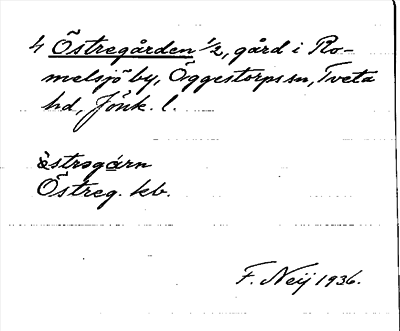 4 Östregården 1/2, gård i Ro-
melsjö by, Öggestorps sn, Tveta
hd, Jönk. l.
östrəgárn
Östreg. kb.
F. Neij 1936.